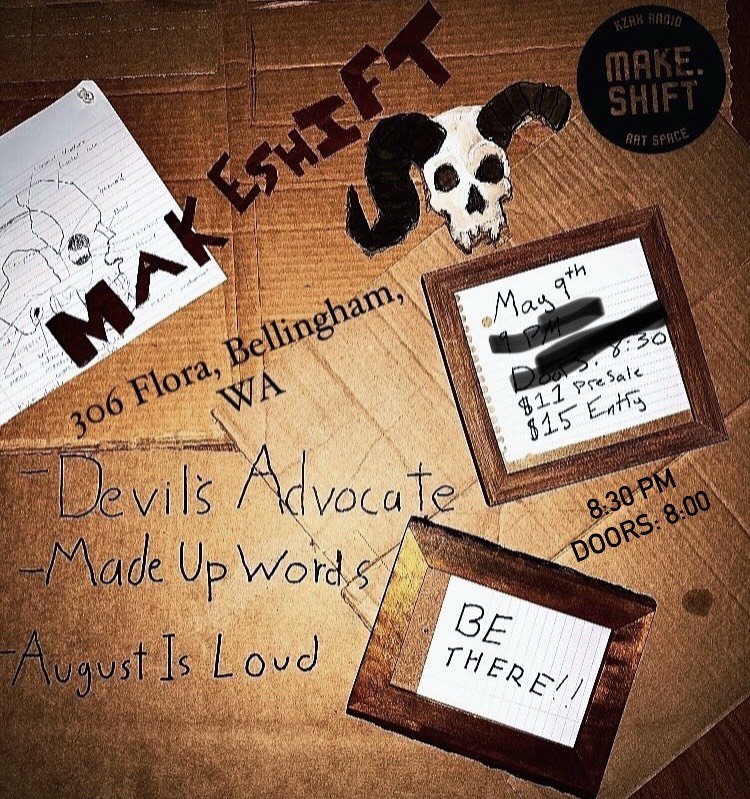 MAKESHIFT
KZAX RADIO
MAKE.
SHIFT
ART SPACE
306 Flora, Bellingham,
WA
May 9th
9 PM
Doors: 8:30
$11 Presale
$15 Entry
8:30 PM
DOORS: 8:00
-Devil's Advocate
-Made Up Words
-August Is Loud
BE
THERE!!